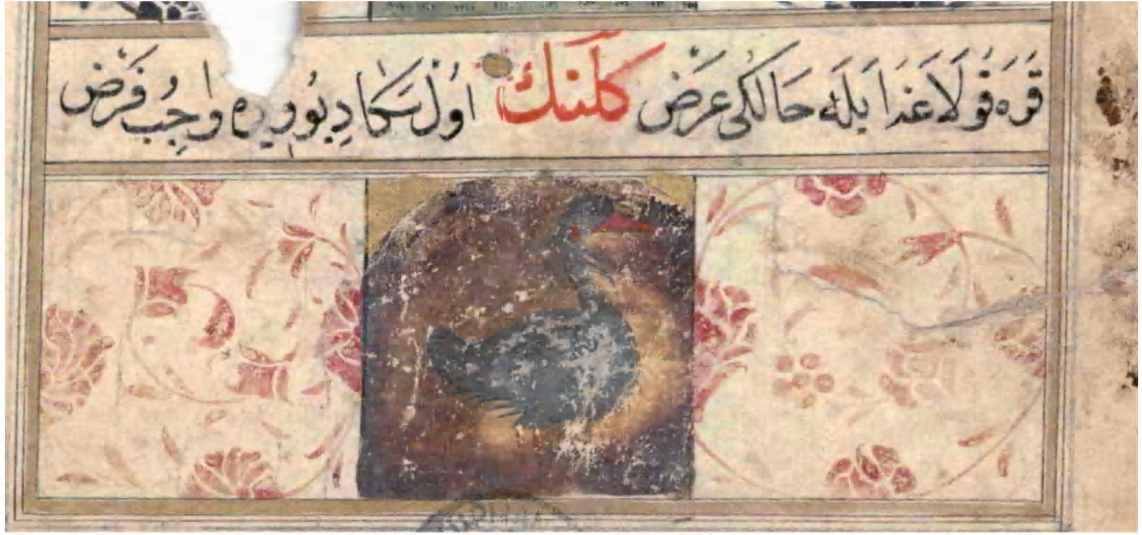 قَرَه قُولَاغَه اَيلَه حَالكى عَرْض كُلَنك اوُل سَكَا دِيوُ ويره وَاجِب فَرْض